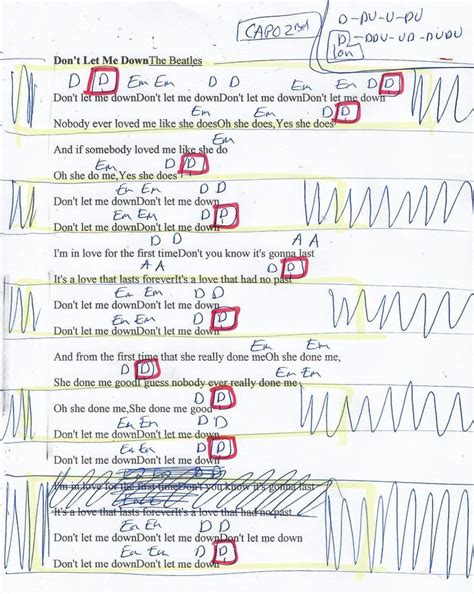 CAPO 2nd
D-DU-U-DU
D-DDU-UD-DUDU
Don't Let Me DownThe Beatles
D D Em Em D D Em Em D D
Don't let me downDon't let me downDon't let me downDon't let me down
Em Em D D
Nobody ever loved me like she doesOh she does,Yes she does
Em
And if somebody loved me like she do
Em D D
Oh she do me,Yes she does
Em Em D D
Don't let me downDon't let me down
Em Em D D
Don't let me downDon't let me down
D D A A
I'm in love for the first timeDon't you know it's gonna last
A A D D
It's a love that lasts foreverIt's a love that had no past
Em Em D D
Don't let me downDon't let me down
Em Em D D
Don't let me downDon't let me down
Em Em
And from the first time that she really done meOh she done me,
D D Em Em
She done me goodI guess nobody ever really done me
D D
Oh she done me,She done me good
Em Em D D
Don't let me downDon't let me down
Em Em D D
Don't let me downDon't let me down
Em Em D D
I'm in love for the first timeDon't you know it's gonna last
It's a love that lasts foreverIt's a love that had no past
Em Em D D
Don't let me downDon't let me downDon't let me down
Em Em D D
Don't let me downDon't let me down